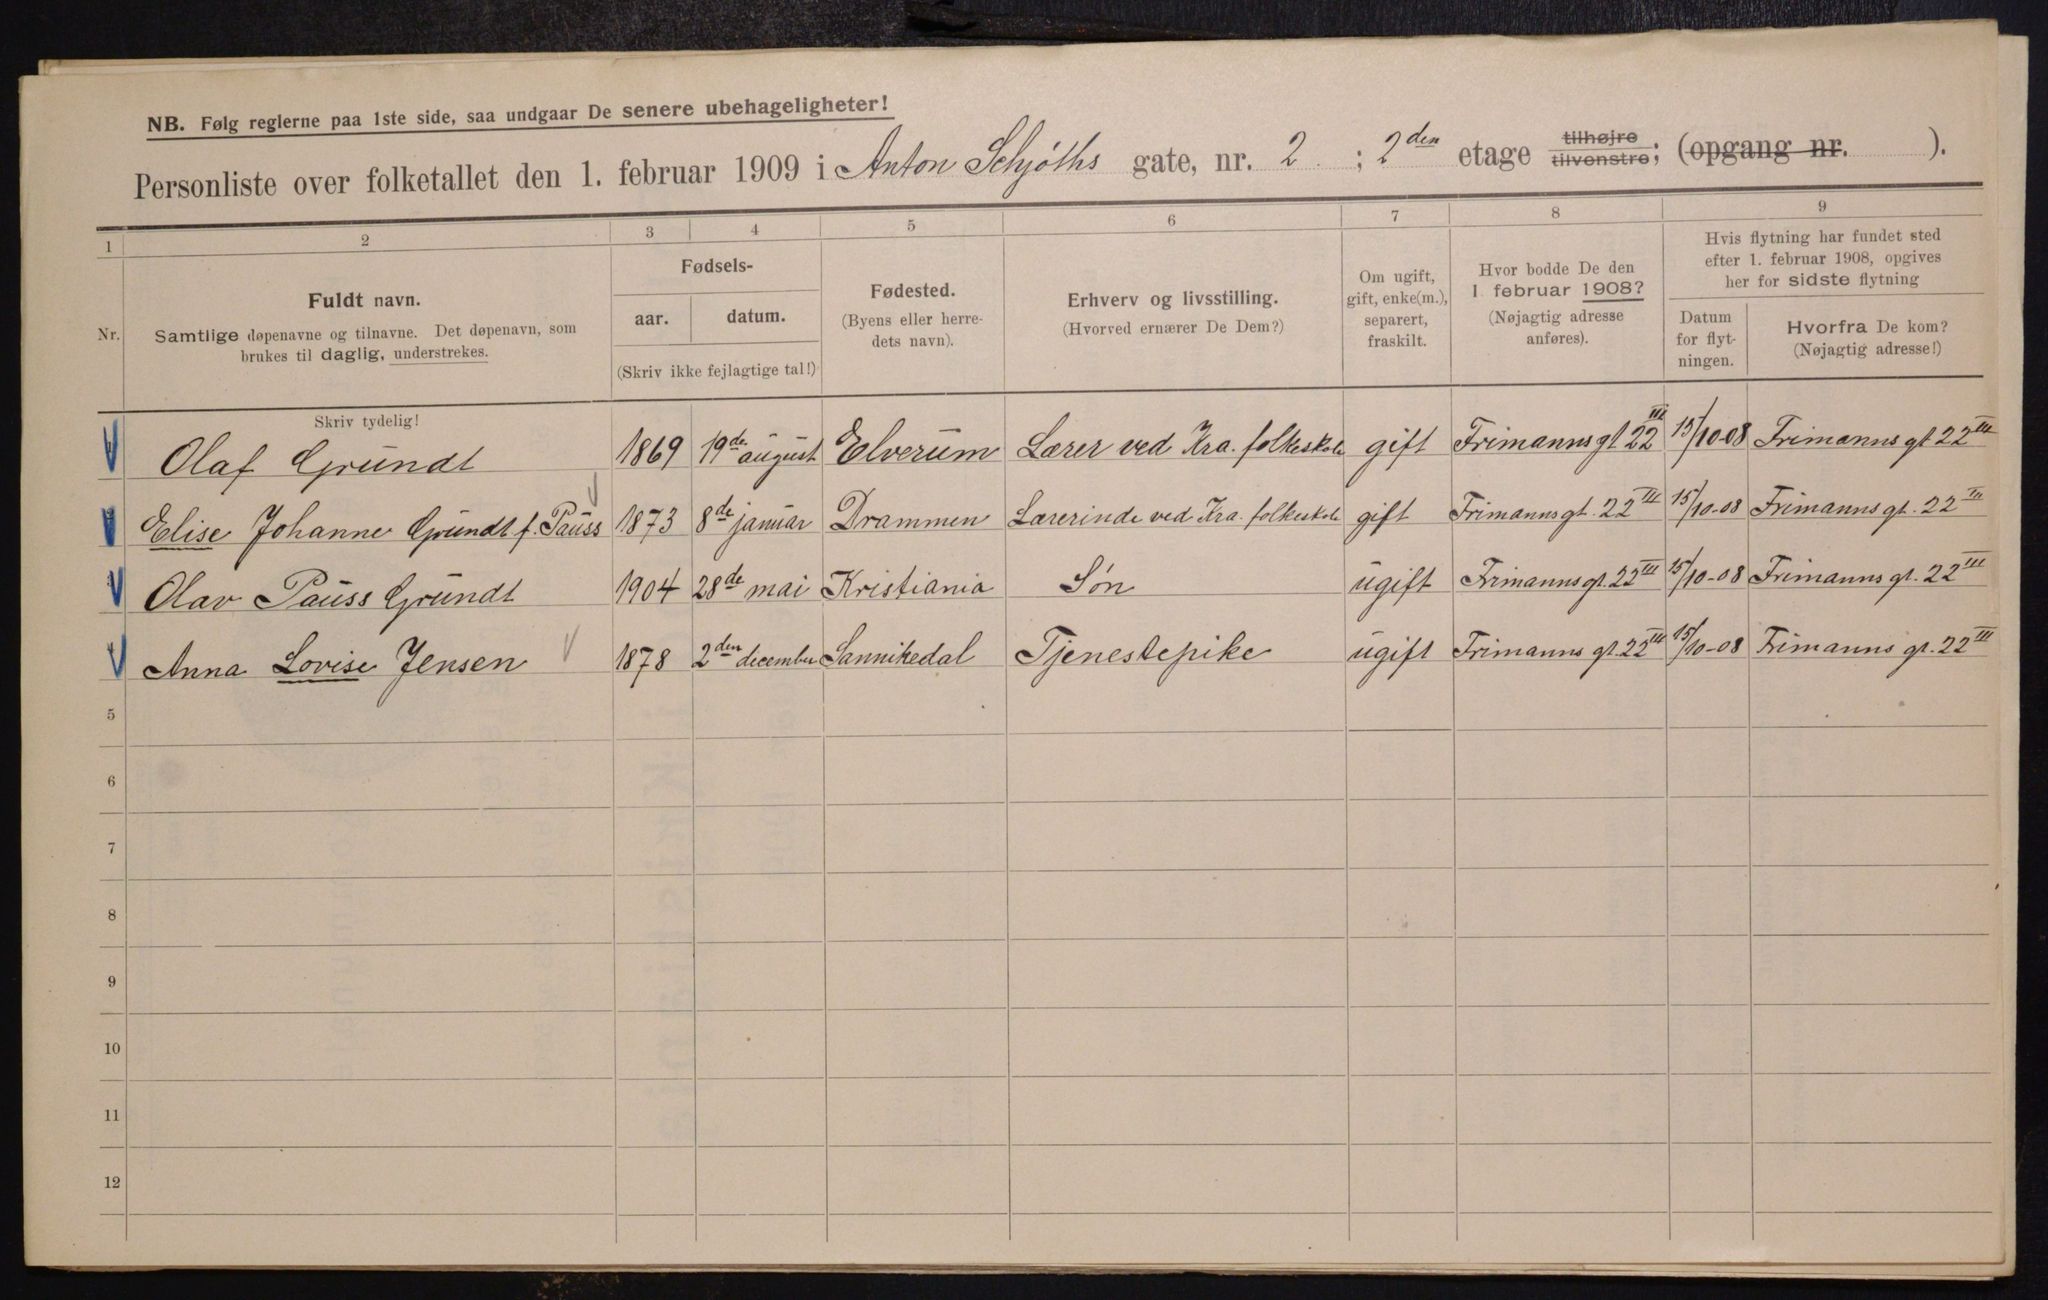 NB. Følg reglerne paa 1ste side, saa undgaar De senere ubehageligheter!
Personliste over folketallet den 1. februar 1909 i Anton Schjøths gate, nr. 2 ; 2den etage tilhøjre tilvenstre; (opgang nr. ).
1 2 3 4 5 6 7 8 9
Nr.
Fuldt navn.
Samtlige døpenavne og tilnavne. Det døpenavn, som
brukes til daglig, understrekes.
Fødsels-
aar. datum.
(Skriv ikke fejlagtige tal!)
Fødested.
(Byens eller herre-
dets navn).
Erhverv og livsstilling.
(Hvorved ernærer De Dem?)
Om ugift,
gift, enke(m.),
separert,
fraskilt.
Hvor bodde De den
1 februar 1908?
(Nøjagtig adresse
anføres).
Hvis flytning har fundet sted
efter 1. februar 1908, opgives
her for sidste flytning
Datum
for flyt-
ningen.
Hvorfra De kom?
(Nøjagtig adresse!)
Skriv tydelig!
Olaf Grundt 1869 19de august Elverum Lærer ved Kra. folkeskole gift Frimanns gt 22 III 15/10-08 Frimanns gt 22 III
Elise Johanne Grundt f. Pauss 1873 8de januar Drammen Lærerinde ved Kra. folkeskole gift Frimanns gt. 22 III 15/10-08 Frimanns gt. 22 III
Olav Pauss Grundt 1904 28de mai Kristiania Søn ugift Frimanns gt. 22 III 15/10-08 Frimanns gt. 22 III
Anna Lovise Jensen 1878 2den december Sannikedal Tjenestepike ugift Frimanns gt. 22 III 15/10-08 Frimanns gt. 22 III
5
6
7
8
9
10
11
12